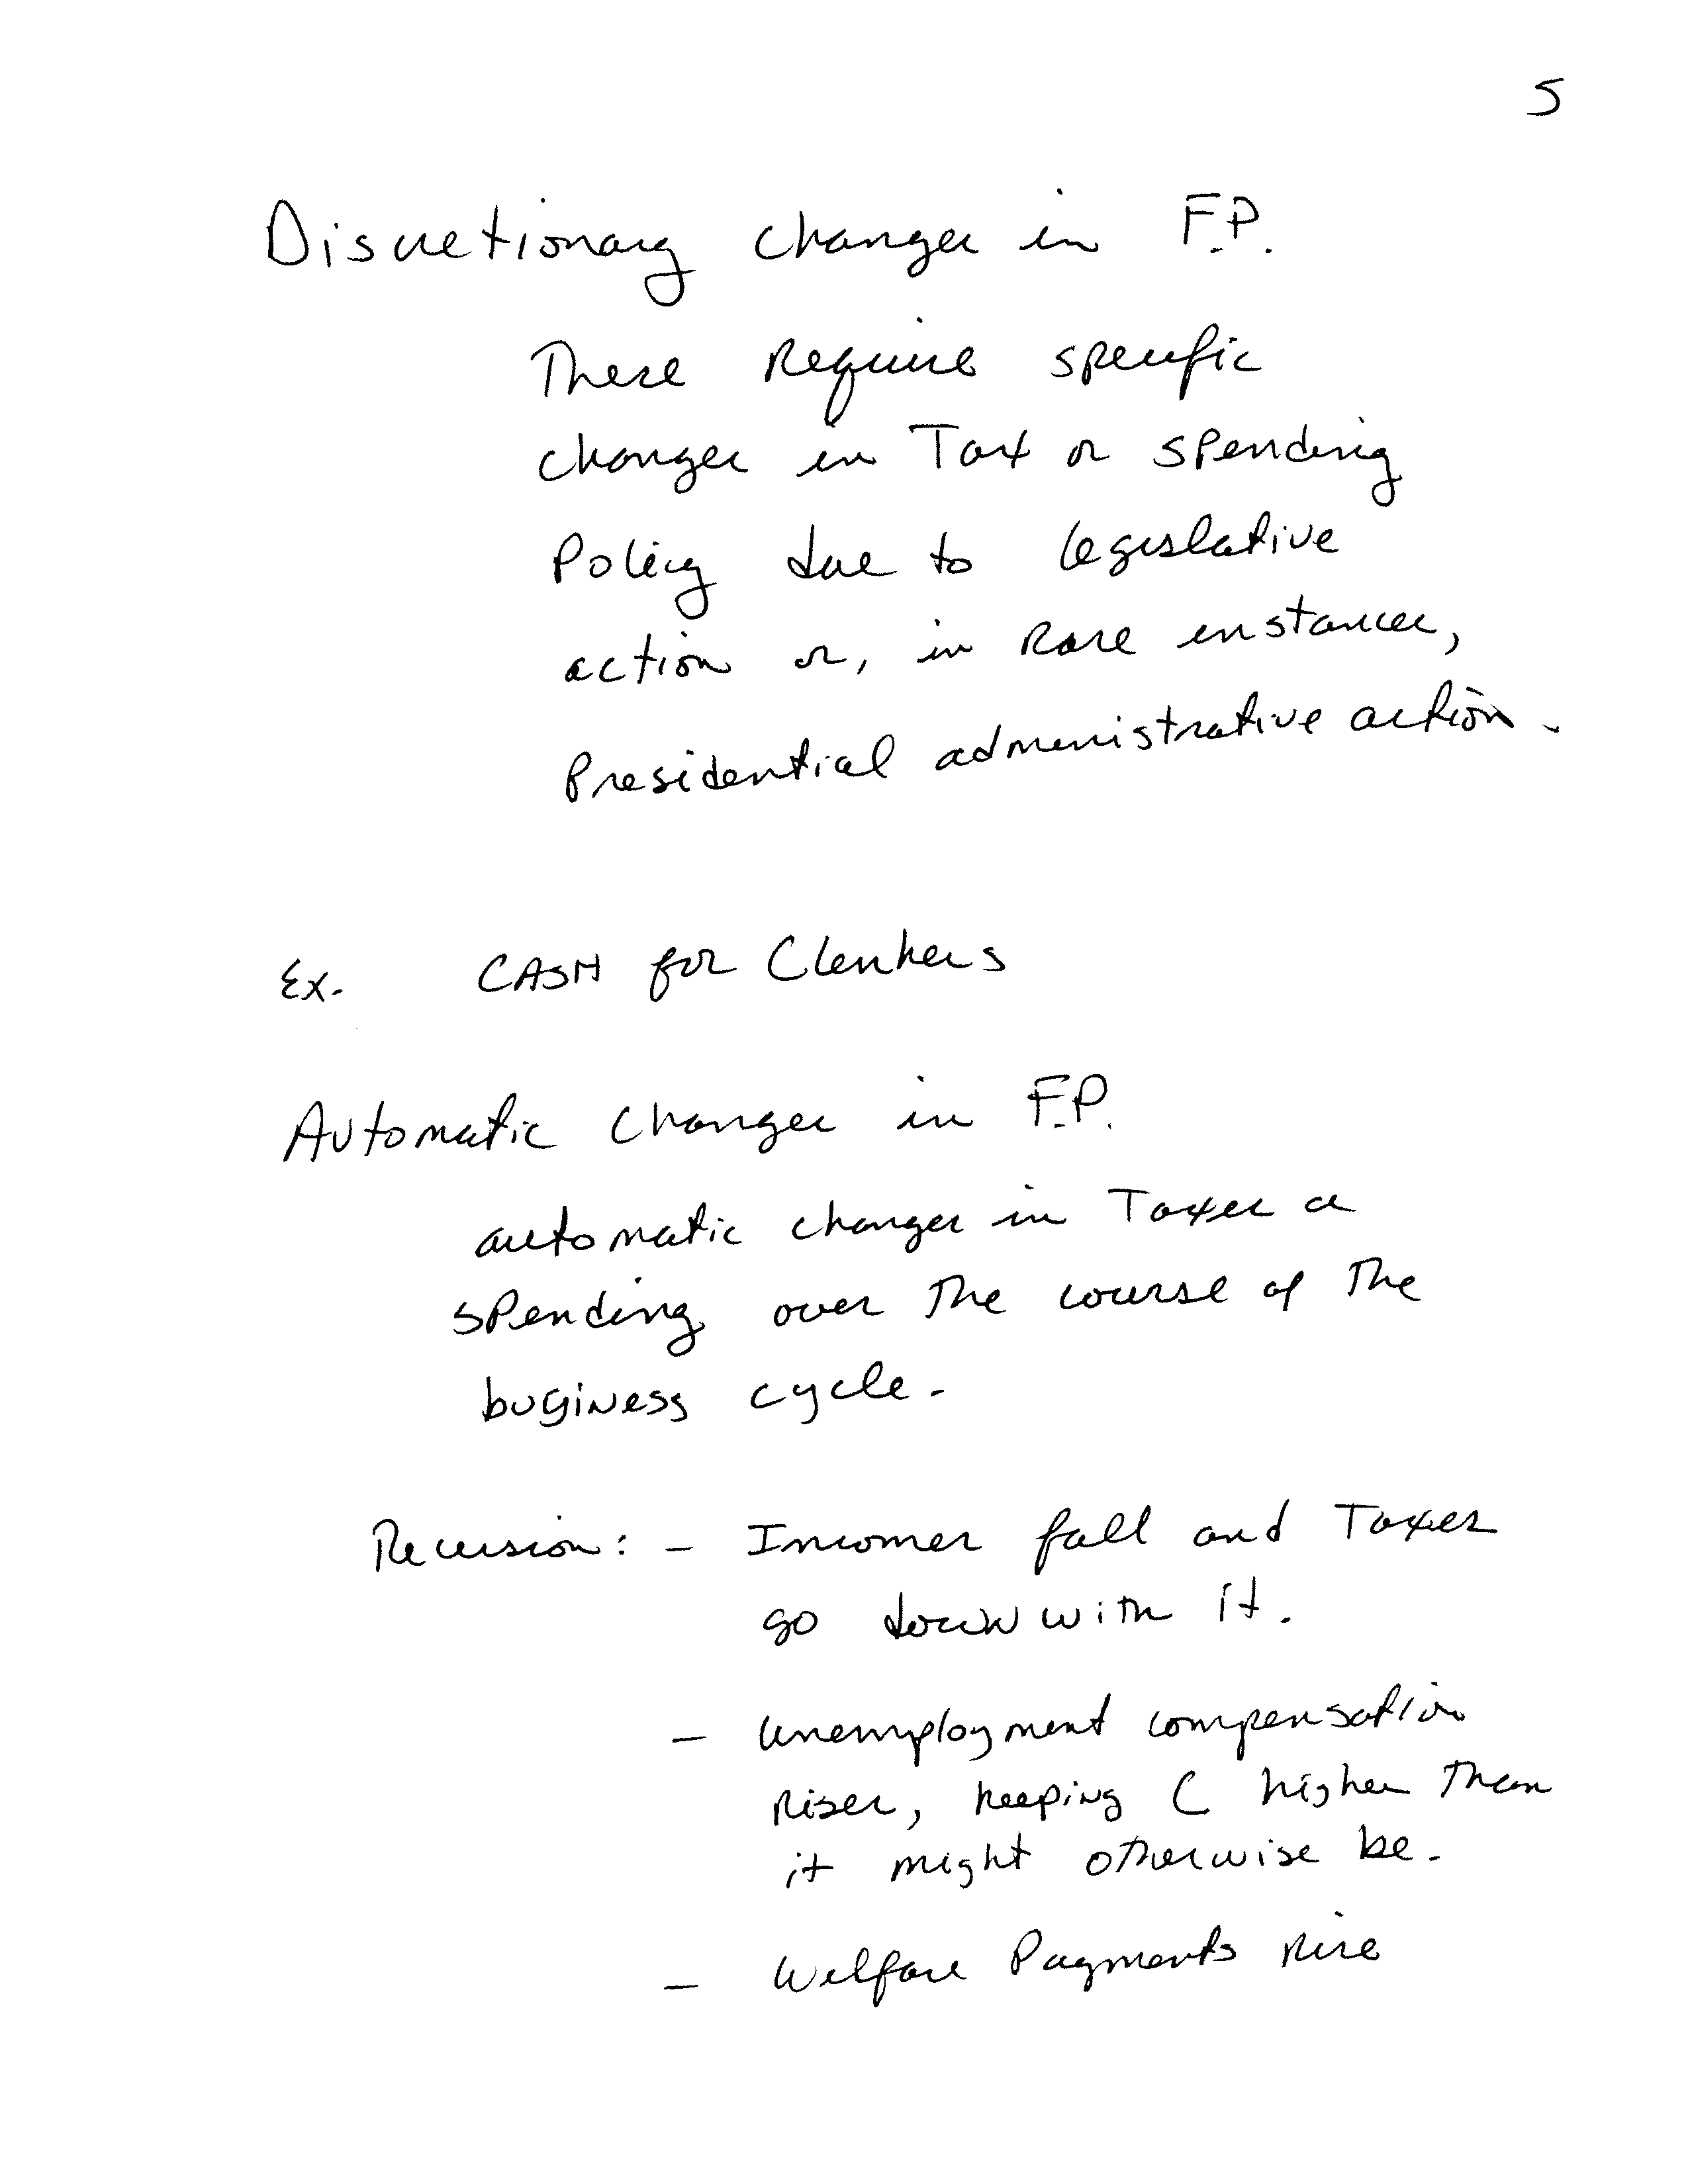 5
Discretionary changes in F.P.
These Require specific
changes in Tax or spending
Policy due to legislative
action or, in Rare instances,
Presidential administrative action.
Ex. CASH for Clunkers
Automatic Changes in F.P.
automatic changes in Taxes or
spending over the course of the
business cycle.
Recession: - Incomes fall and Taxes
go down with it.
- Unemployment compensation
Rises, keeping C higher than
it might otherwise be.
- Welfare Payments Rise